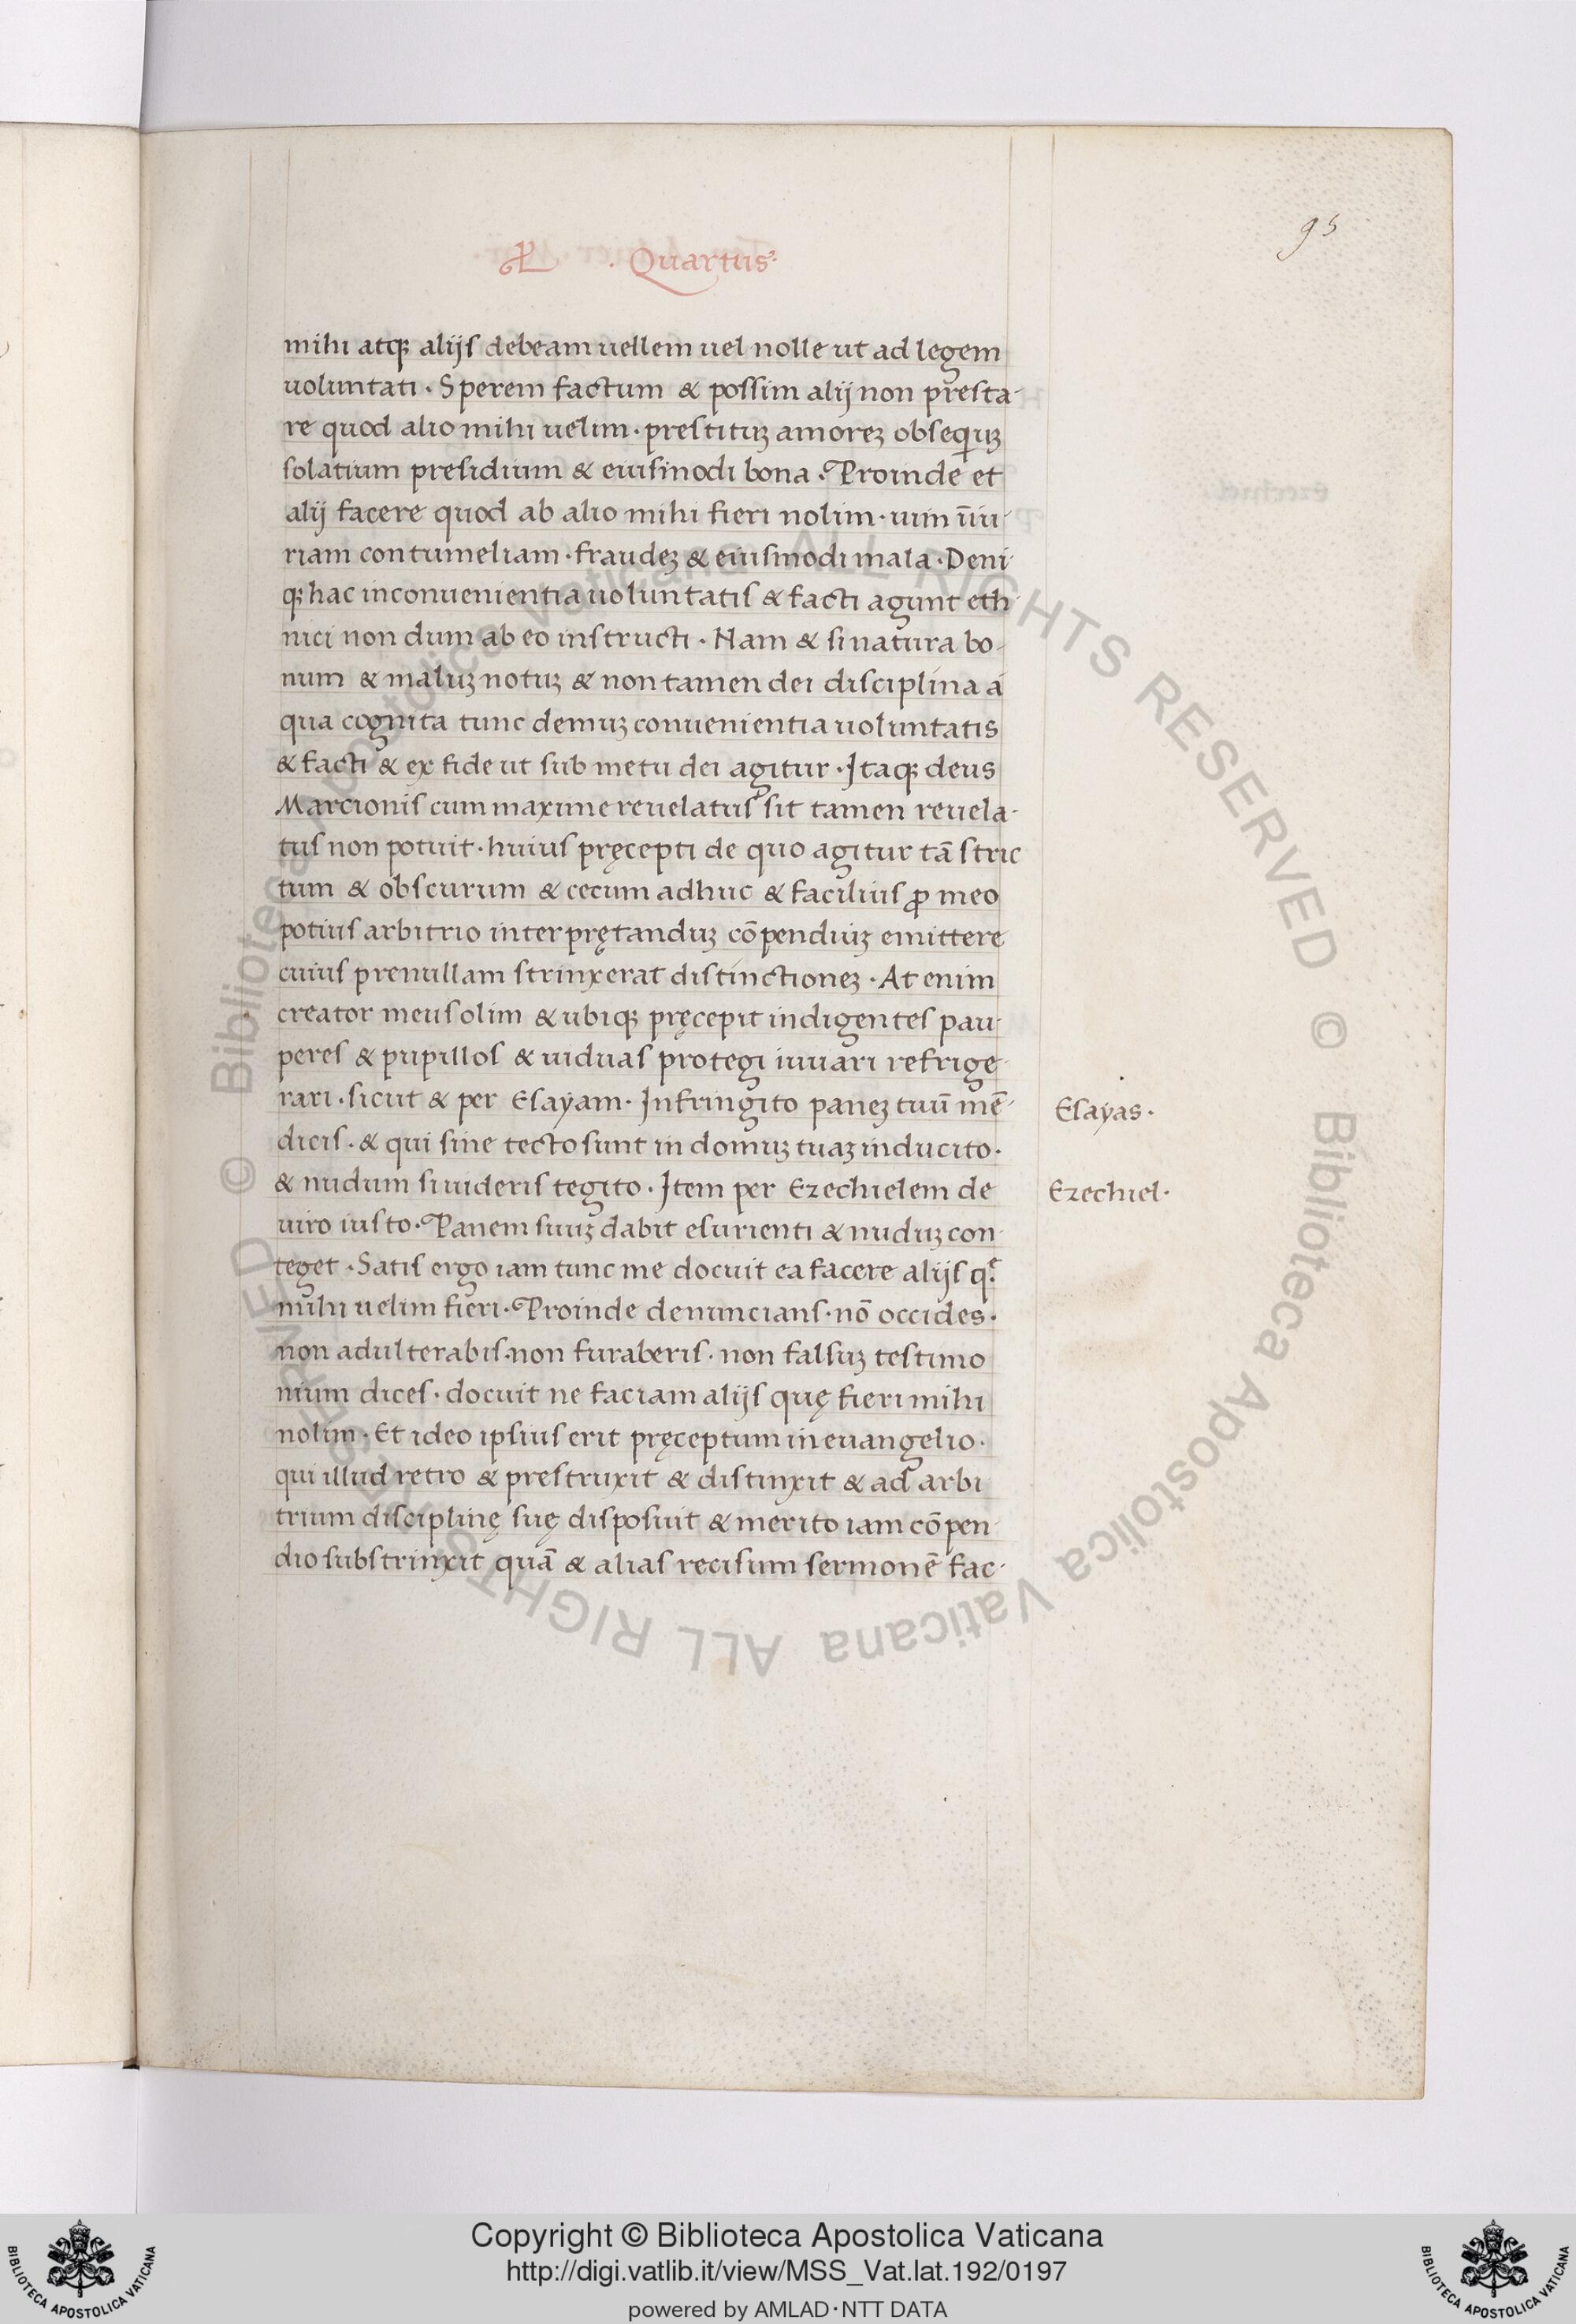 95
Quartus
mihi atq; alijs debeam uellem uel nolle ut ad legem
uoluntati · Sperem factum & possim alij non presta-
re quod alio mihi uelim · prestituȝ amoreȝ obsequiuȝ
solatium presidium & eiusmodi bona · Proinde et
alij facere quod ab alio mihi fieri nolim · uim īiu-
riam contumeliam · fraudeȝ & eiusmodi mala · Deni-
q; hac inconuenientia uoluntatis & facti agunt eth-
nici non dum ab eo instructi · Nam & si natura bo-
num & maluȝ notuȝ & non tamen dei disciplina a
qua cognita tunc demuȝ conuenientia uoluntatis
& facti & ex fide ut sub metu dei agitur · Itaq; deus
Marcionis cum maxime reuelatus sit tamen reuela-
tus non potuit · huius pręcepti de quo agitur tā stric
tum & obscurum & cecum adhuc & facilius ꝓ meo
potius arbitrio interprętanduȝ cōpendiuȝ emittere
cuius prenullam strinxerat distinctioneȝ · At enim
creator meus olim & ubiq; pręcepit indigentes pau-
peres & pupillos & uiduas protegi iuuari refrige-
rari · sicut & per Esayam · Infringito paneȝ tuū mē-
dicis · & qui sine tecto sunt in domuȝ tuaȝ inducito ·
& nudum si uideris tegito · Item per Ezechielem de
uiro iusto · Panem suuȝ dabit esurienti & nuduȝ con-
teget · Satis ergo iam tunc me docuit ea facere alijs qͤ
mihi uelim fieri · Proinde denuncians · nō occides ·
non adulterabis · non furaberis · non falsuȝ testimo
nium dices · docuit ne faciam alijs quę fieri mihi
nolim · Et ideo ipsius erit pręceptum in euangelio ·
qui illud retro & prestruxit & distinxit & ad arbi
trium disciplinę suę disposuit & merito iam cōpen
dio substrinxit quā & alias recisum sermonē fac-
Esayas ·
Ezechiel ·
© Biblioteca Apostolica Vaticana ALL RIGHTS RESERVED © Biblioteca Apostolica Vaticana ALL RIGHTS RESERVED
Copyright © Biblioteca Apostolica Vaticana
http://digi.vatlib.it/view/MSS_Vat.lat.192/0197
powered by AMLAD·NTT DATA
BIBLIOTECA APOSTOLICA VATICANA
BIBLIOTECA APOSTOLICA VATICANA